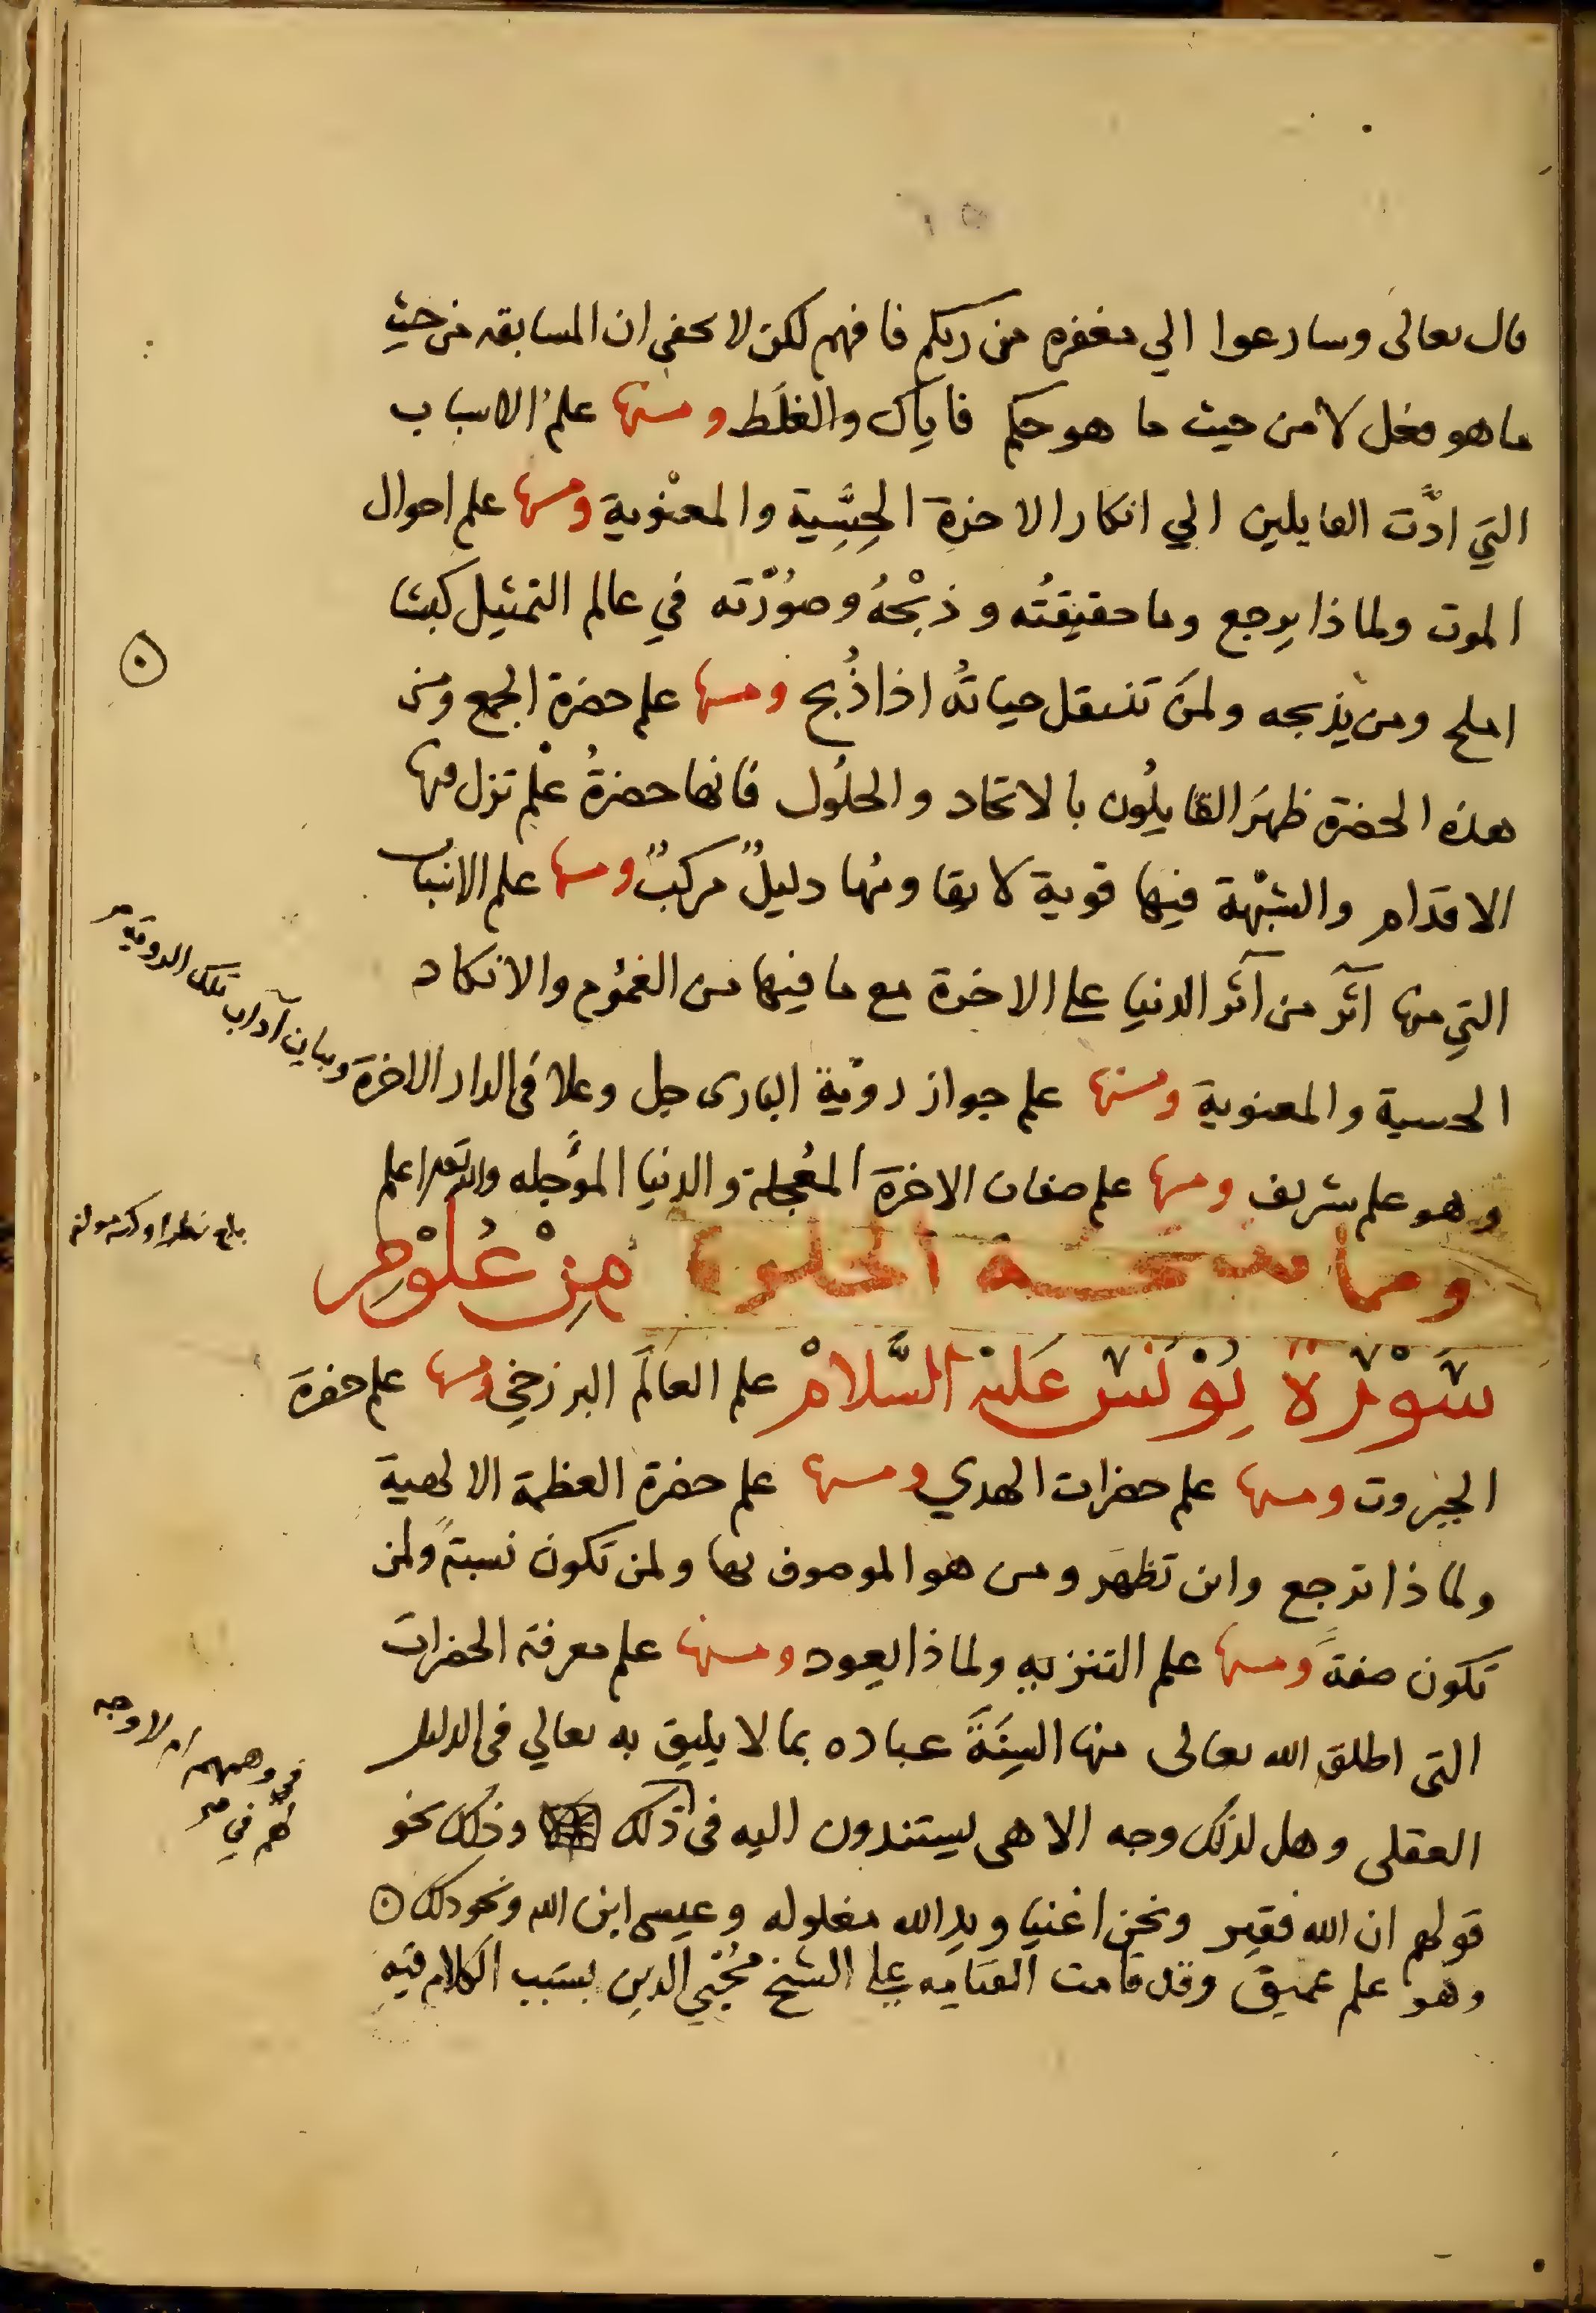 قال تعالى وسارعوا الي مغفره من ربكم فافهم لكن لا يخفى ان المسابقه من حيث
ما هو فعل لا من حيث ما هو حكم فاياك والغلَط ومنها علم الاسباب
التي ادَّت القايلين الي انكار الاخرة الحِسِّية والمعنوية ومنها علم احوال
الموت ولماذا يرجع وما حقيقتُه وذبْحُهُ وصوُرْته في عالم التمثيل كبشا
املح ومن يذبحه ولمَن تنتقل حياتُه اذا ذُبح ومنها علم حضرة الجمع ومن
هذه الحضرة ظهرَ القايلُون بالاتحاد والحلُول فانها حضرةُ علْم تزل فيها
الاقدام والشبْهة فيها قوية لا يقاومُها دليلٌ مركبٌ ومنها علم الاسباب
التي منها آثر من آثر الدنيا على الاخرة مع ما فيها من الغمُوم والانكاد
الحسية والمعنوية ومنها علم جواز روّية البارى جل وعلا فى الدار الاخرة
وبيان آداب تلك الروية
وهو علم شريف ومنها علم صفات الاخرة المعُجلة والدنيا المؤَّجله والله تعالى اعلم
ومما منحته الخلوة مِنْ عُلوْمِ
سُوْرَة يُوْنسْ عَليْه السَّلامْ علم العالَم البرزخي ومنها علم حضرة
الجبروت ومنها علم حضرات الهدي ومنها علم حضرة العظمة الالهية
ولماذا ترجع واين تظهَر ومن هو الموصوف بها ولمن تكون نسبةً ولمن
تكون صفةً ومنها علم التنزيه ولماذا يعود ومنها علم معرفة الحضرات
التى اطلق الله تعالى منها السِنَةَ عباده بما لا يليق به تعالي فى الدليل
العقلى وهل لذلك وجه الاهى يستندون اليه فى ذلك وذلك نحو
في وهمهم ام لا وجه
لهم في
قولهم ان الله فقير ونحن اغنيا ويد الله مغلوله وعيسى ابن الله ونحو ذلك
وهو علم عميق وقد قامت القيامه على الشيخ مُحْيي الدين بسَبب الكلام فيه